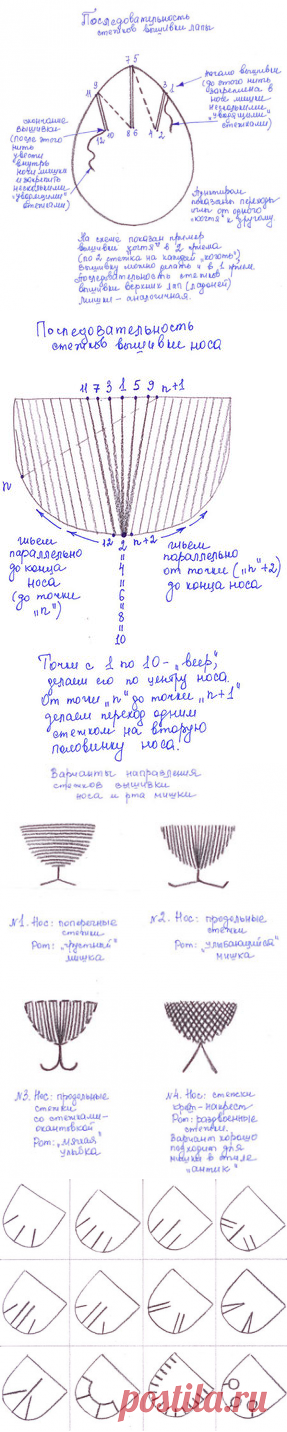 Последовательность
стежков вышивки лапы
7 5
9
11
3
1
начало вышивки
(до этого нить
закреплена в
ноге мишки
несколькими
"уворящими"
стежками)
окончание
вышивки
(после этого
нить
увести
внутрь
ноги мишки
и закрепить
несколькими
стежками)
12 10 8 6 4 2
Пунктиром
показаны переходы
иглы от одного
"когтя" к другому.
На схеме показан пример
вышивки "когтя" в 2 приема
(по 2 стежка на каждый "коготь"),
вышивку можно делать и в 1 прием.
Последовательность стежков
вышивки верхних лап (ладоней)
мишки - аналогичная.
Последовательность
стежков вышивки носа
11 7 3 1 5 9 n+1
n
12 2 n+2
"
4
"
6
"
8
"
10
шьем
параллельно
до конца
носа
(до точки
"n")
шьем
параллельно
от точки ("n"+2)
до конца носа
Точки с 1 по 10 - "веер",
делаем его по центру носа.
От точки "n" до точки "n+1"
делаем переход одним
стежком на вторую
половинку носа.
Варианты направления
стежков вышивки
носа и рта мишки
N1. Нос: поперечные
стежки
Рот: "грустный"
мишка
N2. Нос: продольные
стежки
Рот: "улыбающийся"
мишка
N3. Нос: продольные
стежки
со стежками-
окантовкой
Рот: "мягкая"
улыбка
N4. Нос: стежки
крест-накрест
Рот: раздвоенные
стежки.
Вариант хорошо
подходит для
мишки в стиле
"антик"
postila.ru